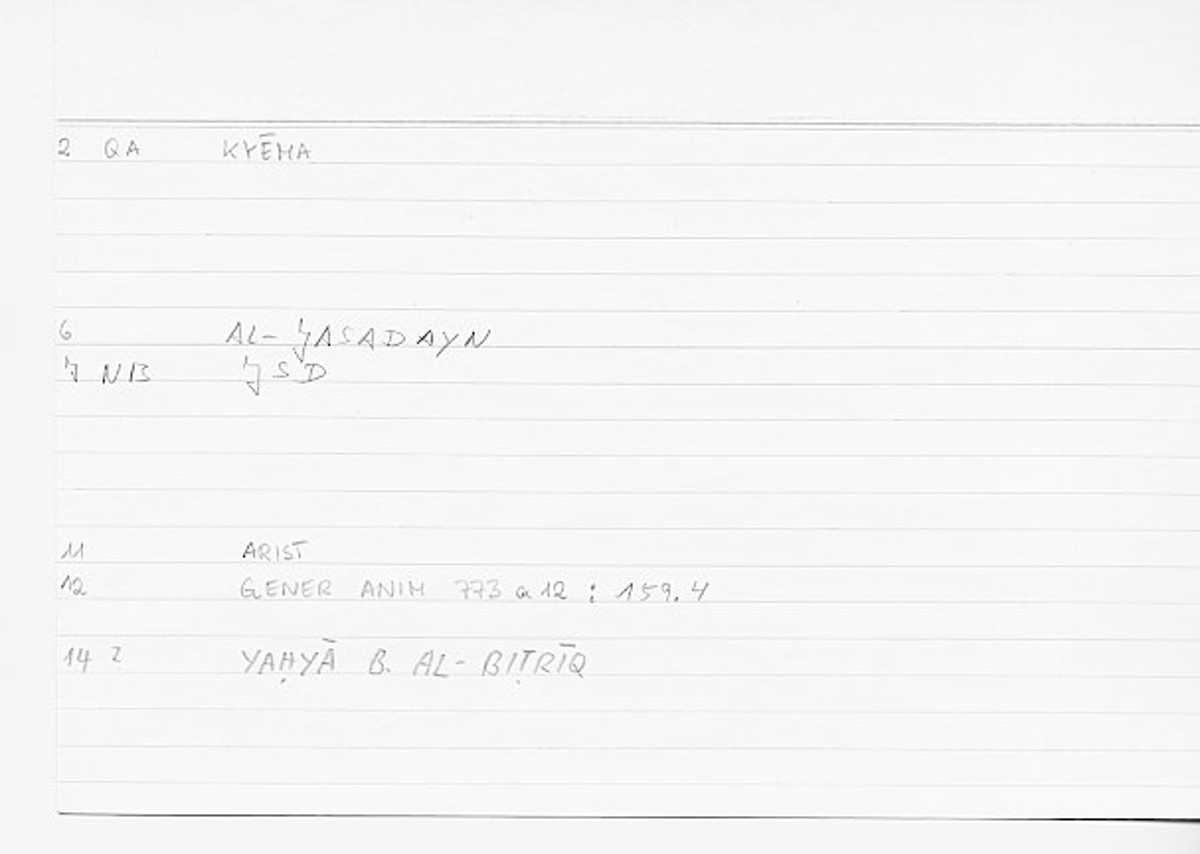 2 QA KYĒMA
6 AL-ǦASADAYN
7 NB ǦSD
11 ARIST
12 GENER ANIM 773 a 12 : 159.4
14 2 YAḤYĀ B. AL-BIṬRĪQ